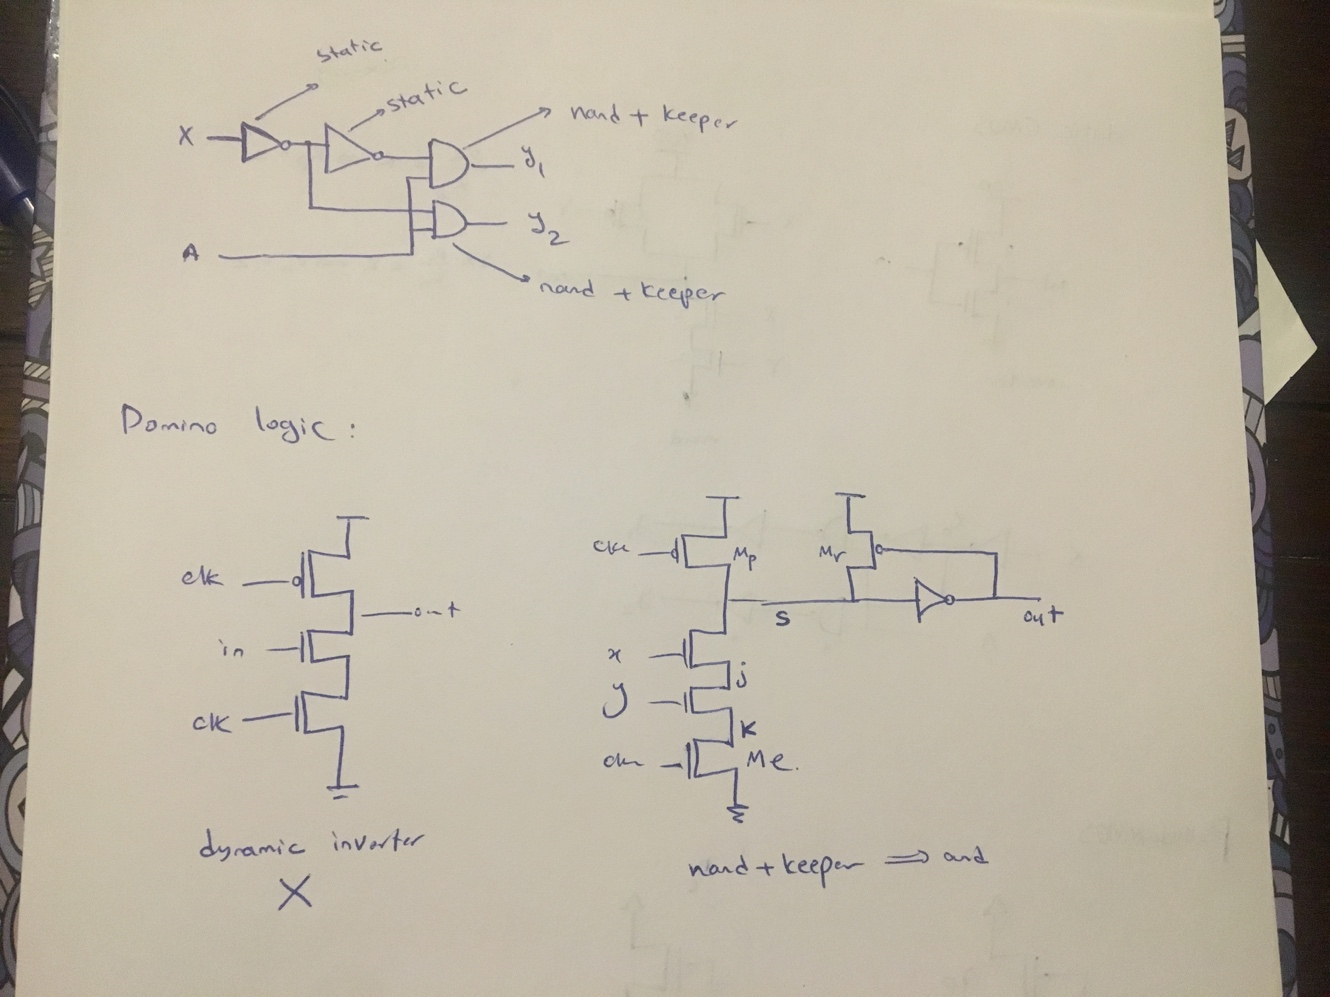 static
static
nand + keeper
X
y1
y2
A
nand + keeper
Domino logic :
clk
out
in
clk
dynamic inverter
X
clk
Mp
Mr
S
out
x
j
y
K
clk
Me.
nand + keeper ⇒ and